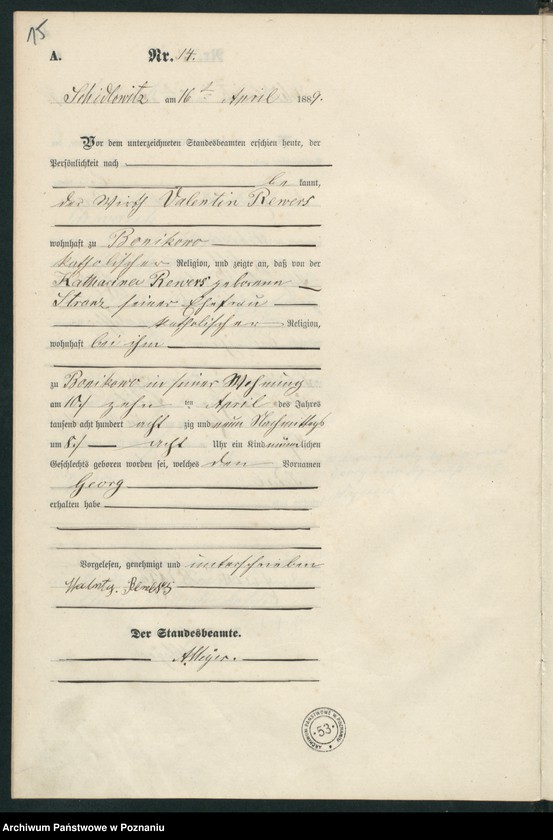 15
A.
Nr. 14.
Schidlowitz am 16 t April 1889.
Vor dem unterzeichneten Standesbeamten erschien heute, der
Persönlichkeit nach
be kannt,
der Wirth Valentin Rewers
wohnhaft zu Bonikowo
katholischer Religion, und zeigte an, daß von der
Katharina Rewers geborenen
seiner Ehefrau
katholischer Religion,
wohnhaft bei ihm
zu Bonikowo in seiner Wohnung
am 10./ zehn ten April des Jahres
tausend acht hundert acht zig und neun Nachmittags
um 8./ acht Uhr ein Kind männlichen
Geschlechts geboren worden sei, welches den Vornamen
Georg
erhalten habe
Vorgelesen, genehmigt und unterschrieben
Der Standesbeamte.
ARCHIWUM PAŃSTWOWE W POZNANIU
53
Archiwum Państwowe w Poznaniu